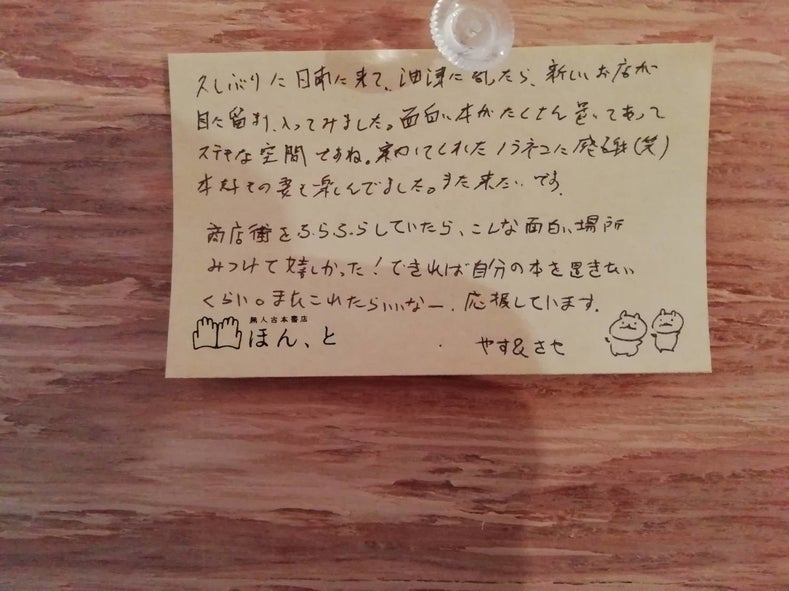 久しぶりに日南に来て、油津に したら、新しいお店が
目に留まり、入ってみました。面白い本がたくさん置いてあって
ステキな空間ですね。案内してくれたノラネコに感謝(笑)
本好きの妻も楽しんでました。また来たいです。
商店街をふらふらしていたら、こんな面白い場所
みつけて嬉しかった！できれば自分の本を置きたい
くらい。またこれたらいいなー。応援しています。
無人古本書店
ほん、と
やす&させ